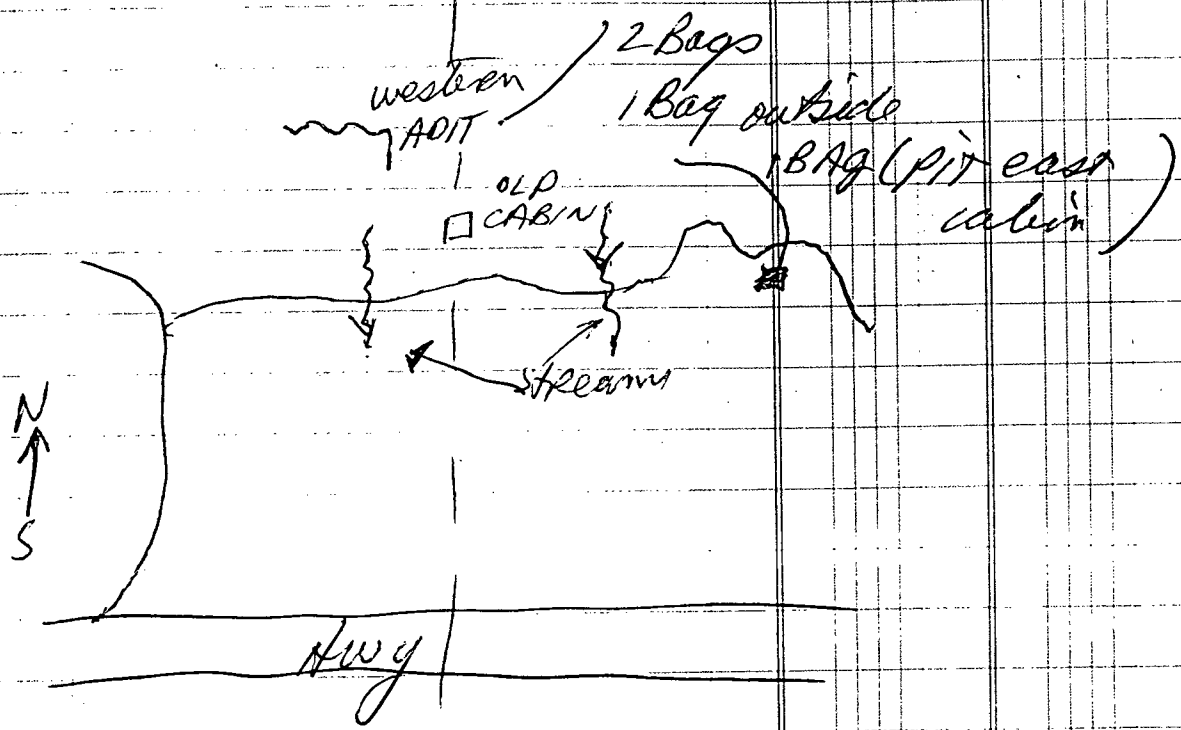 2 Bags
western
ADIT
1 Bag outside
1 BAg (pit east
cabin)
OLD
CABIN
streams
N
S
Hwy